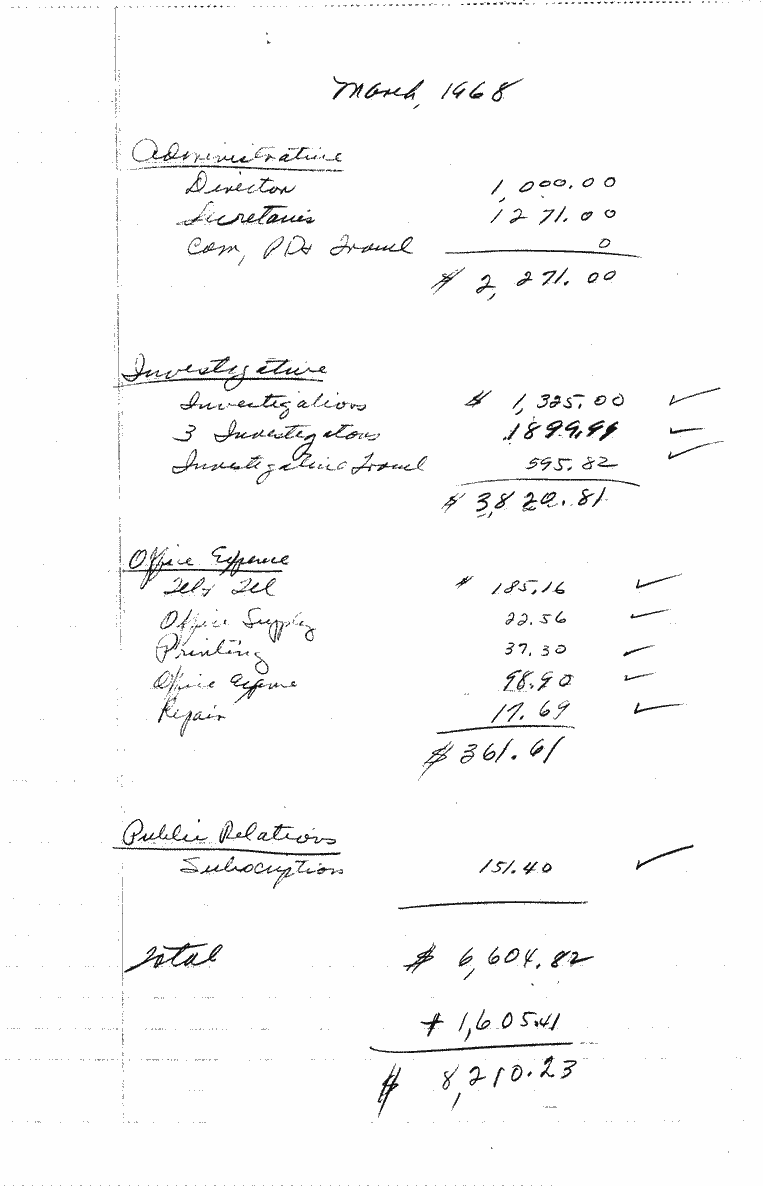 March, 1968
Administrative
Director 1,000.00
Secretaries 1271.00
Com, PD& Travel 0
$ 2,271.00
Investigative
Investigations $ 1,325.00
3 Investigators 1899.99
Investigative Travel 595.82
$ 3,820.81
Office Expense
Tel & Tel $ 185.16
Office Supply 22.56
Printing 37.30
Office Expense 98.90
Repair 17.69
$ 361.61
Public Relations
Subscription 151.40
Total $ 6,604.82
+ 1,605.41
$ 8,210.23